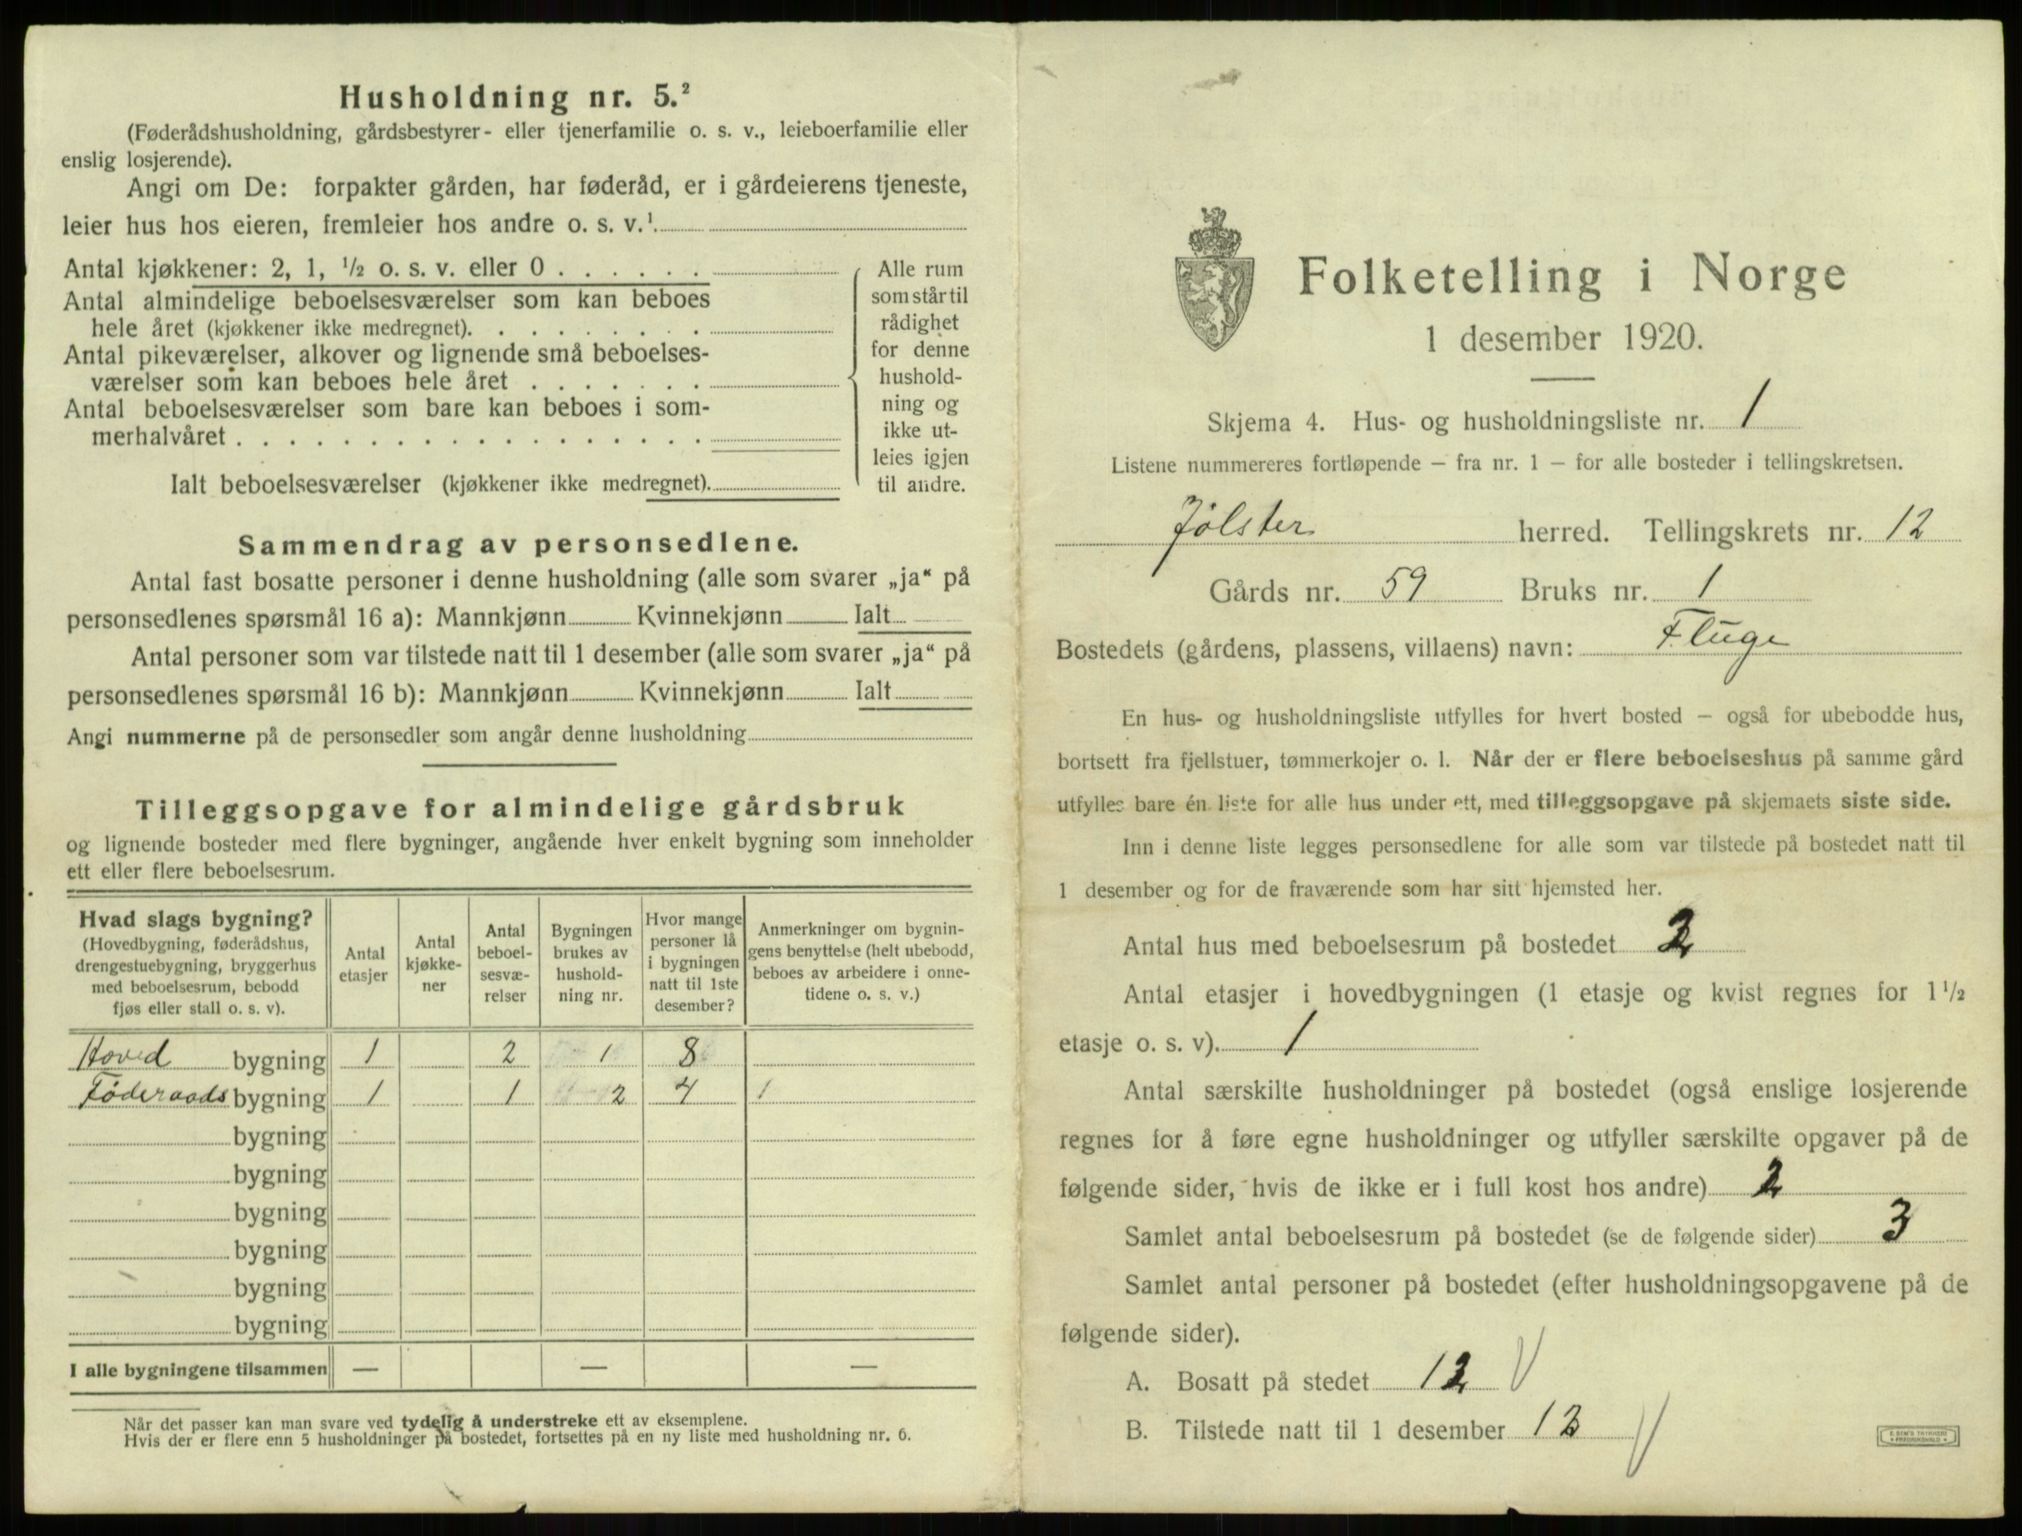 Husholdning nr. 5.²
(Føderådshusholdning, gårdsbestyrer- eller tjenerfamilie o. s. v., leieboerfamilie eller
enslig losjerende).
Angi om De: forpakter gården, har føderåd, er i gårdeierens tjeneste,
leier hus hos eieren, fremleier hos andre o. s. v.¹
Antal kjøkkener: 2, 1, ½ o. s. v. eller 0 . . . . . .
Antal almindelige beboelsesværelser som kan beboes
hele året (kjøkkener ikke medregnet). . . . . . . . .
Antal pikeværelser, alkover og lignende små beboelses-
værelser som kan beboes hele året . . . . . . .
Antal beboelsesværelser som bare kan beboes i som-
merhalvåret . . . . . . . . . . . . . . . . . .
Ialt beboelsesværelser (kjøkkener ikke medregnet).
Alle rum
som står til
rådighet
for denne
hushold-
ning og
ikke ut-
leies igjen
til andre.
Sammendrag av personsedlene.
Antal fast bosatte personer i denne husholdning (alle som svarer „ja“ på
personsedlenes spørsmål 16 a): Mannkjønn Kvinnekjønn Ialt
Antal personer som var tilstede natt til 1 desember (alle som svarer „ja“ på
personsedlenes spørsmål 16 b): Mannkjønn Kvinnekjønn Ialt
Angi nummerne på de personsedler som angår denne husholdning
Tilleggsopgave for almindelige gårdsbruk
og lignende bosteder med flere bygninger, angående hver enkelt bygning som inneholder
ett eller flere beboelsesrum.
Hvad slags bygning?
(Hovedbygning, føderådshus,
drengestuebygning, bryggerhus
med beboelsesrum, bebodd
fjøs eller stall o. s. v).
Antal
etasjer
Antal
kjøkke-
ner
Antal
beboel-
sesvæ-
relser
Bygningen
brukes av
hushold-
ning nr.
Hvor mange
personer lå
i bygningen
natt til 1ste
desember?
Anmerkninger om bygnin-
gens benyttelse (helt ubebodd,
beboes av arbeidere i onne-
tidene o. s. v.)
Hoved bygning 1 2 1 8
Føderaads bygning 1 1 2 4 1
bygning
bygning
bygning
bygning
bygning
bygning
I alle bygningene tilsammen — — —
Når det passer kan man svare ved tydelig å understreke ett av eksemplene.
Hvis der er flere enn 5 husholdninger på bostedet, fortsettes på en ny liste med husholdning nr. 6.
Folketelling i Norge
1 desember 1920.
Skjema 4. Hus- og husholdningsliste nr. 1
Listene nummereres fortløpende – fra nr. 1 – for alle bosteder i tellingskretsen.
Jølster herred. Tellingskrets nr. 12
Gårds nr. 59 Bruks nr. 1
Bostedets (gårdens, plassens, villaens) navn: Fluge
En hus- og husholdningsliste utfylles for hvert bosted – også for ubebodde hus,
bortsett fra fjellstuer, tømmerkojer o. l. Når der er flere beboelseshus på samme gård
utfylles bare én liste for alle hus under ett, med tilleggsopgave på skjemaets siste side.
Inn i denne liste legges personsedlene for alle som var tilstede på bostedet natt til
1 desember og for de fraværende som har sitt hjemsted her.
Antal hus med beboelsesrum på bostedet 2
Antal etasjer i hovedbygningen (1 etasje og kvist regnes for 1½
etasje o. s. v). 1
Antal særskilte husholdninger på bostedet (også enslige losjerende
regnes for å føre egne husholdninger og utfyller særskilte opgaver på de
følgende sider, hvis de ikke er i full kost hos andre) 2
Samlet antal beboelsesrum på bostedet (se de følgende sider) 3
Samlet antal personer på bostedet (efter husholdningsopgavene på de
følgende sider).
A. Bosatt på stedet 12
B. Tilstede natt til 1 desember 12